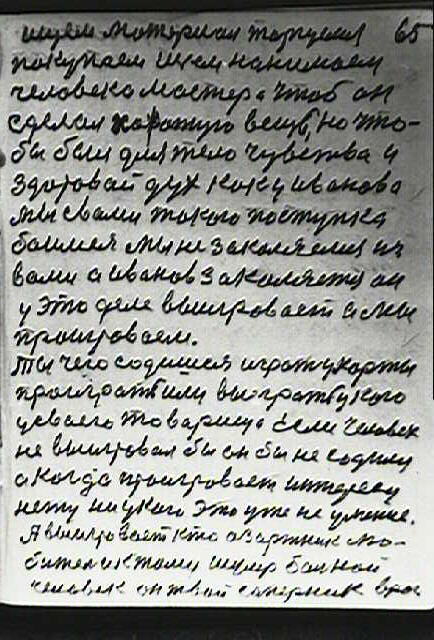 ищем материал торгуемся 65
покупаем шьем нанимаем
человека мастера чтоб он
сделал хорошую вещь, но что-
бы был для тело чувства и
здоровай дух как у иванова
мы свами такого поступка
боимся мы не закаляемся из
вами а иванов закаляется он
у это деле выигровает а мы
проигроваем.
Ты чего содишся играть у карты
проиграть или выиграть у кого
у своего товарища Если человек
не выигровал бы он бы не содился
а когда проигровает интересу
нету ни у кого это уже не умение.
А выигровает кто азартник лю-
битель к тому шулер больной
человек он твой соперник враг